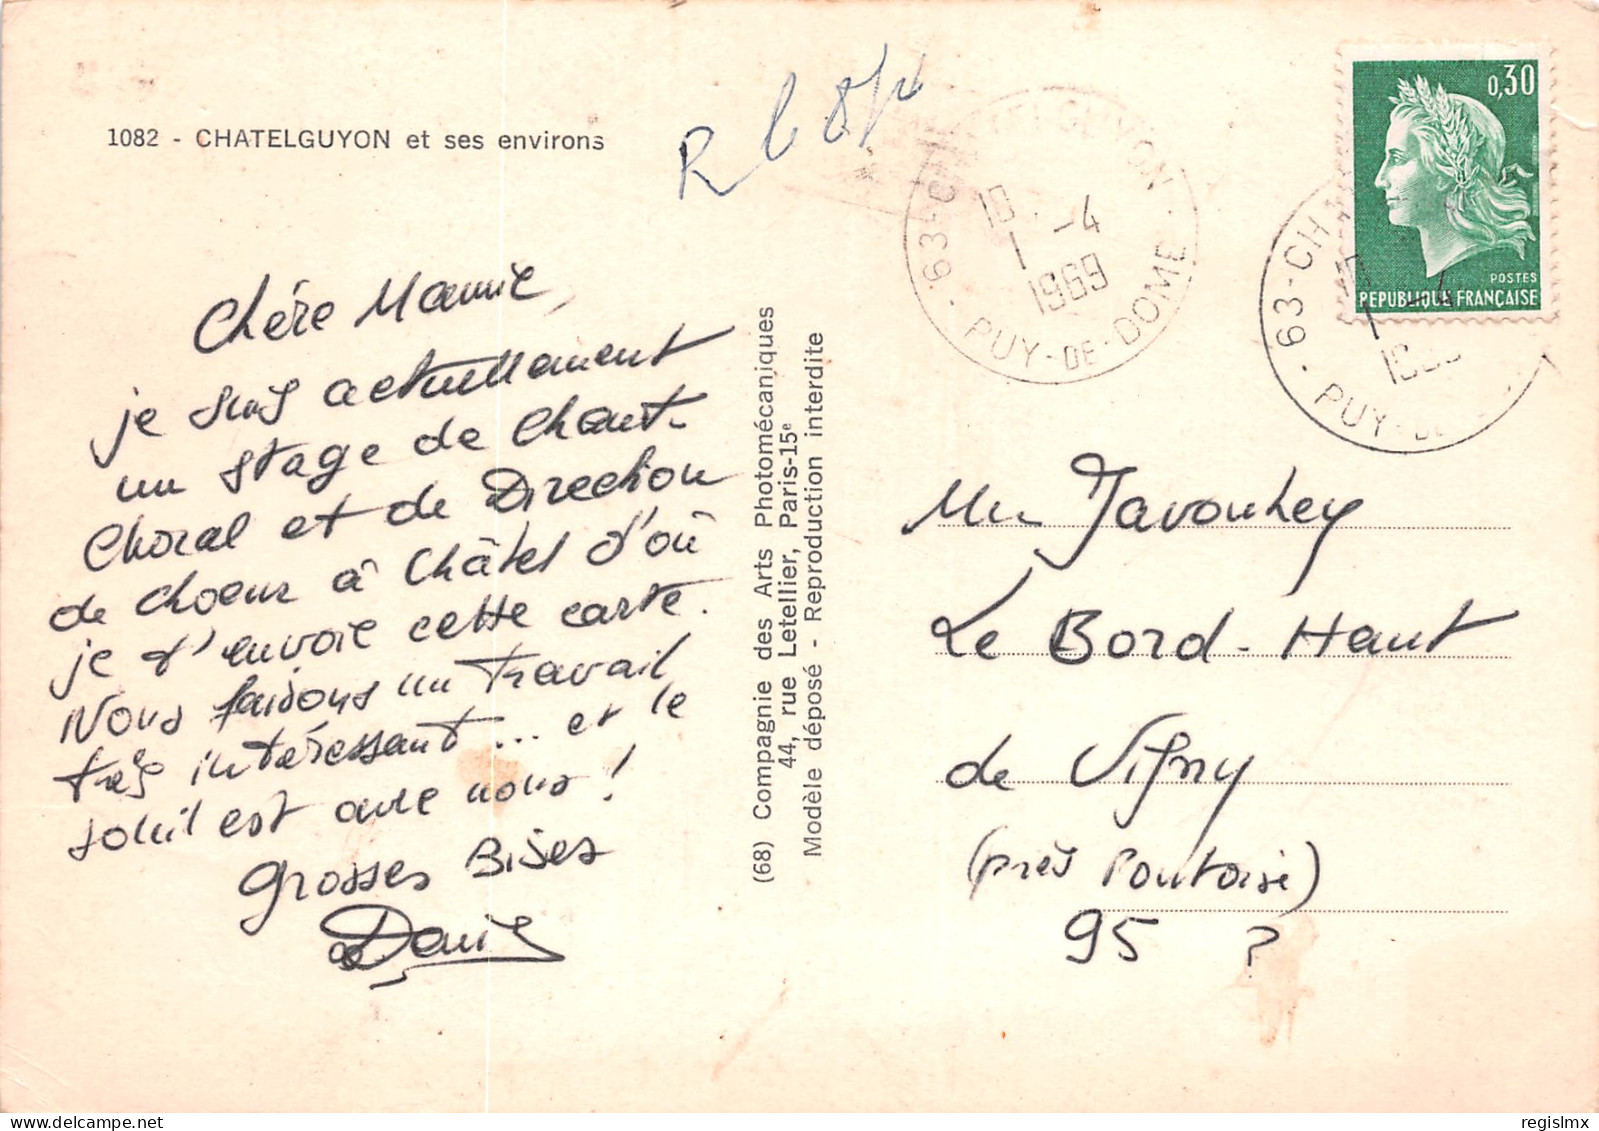 1082 - CHATELGUYON et ses environs
R le 8/4
Chère Mamie,
je suis actuellement
un stage de Chant-
Choral et de Direction
de choeur à Châtel d'où
je t'envoie cette carte.
Nous faisons un travail
très intéressant... et le
soleil est avec nous !
Grosses Bises
Daniel
(68) Compagnie des Arts Photomécaniques
44, rue Letellier, Paris-15e
Modèle déposé - Reproduction interdite
63-CHATELGUYON
10 -4
1969
PUY-DE-DOME
0,30
POSTES
REPUBLIQUE FRANÇAISE
63-CHA
PUY-DE
Javouhey
Le Bord-Haut
de Vigny
(près Pontoise)
95 ?
regislmx
delcampe.net